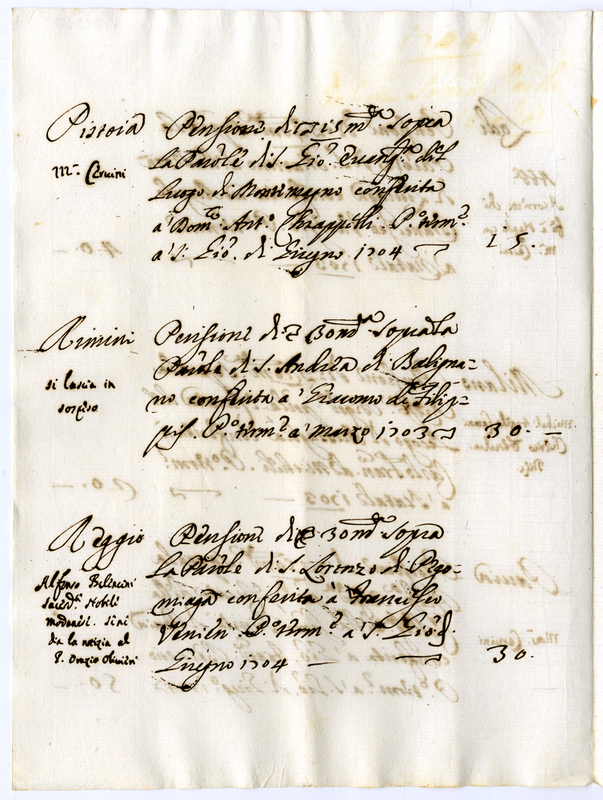 Pistoia
Mr. Cervini
Pensione di 15 md. sopra
La Parole di S. Gio. Evang. del
Luogo di Montemagno conferita
a' Dom. Ant. Chiappelli. P. term.
a' S. Gio. di Giugno 1704
15.
Rimini
si lascia in
sospeso
Pensione di 30 md. sopra la
Parole di S. Andrea di Baligna=
no conferita a' Giacomo de Filip=
pis. P. term. a' Marzo 1703
30.
Reggio
Alfonso
sacerd. Nobile
modenese. si ni
dia la notizia al
P. Orazio Olivieri
Pensione di 30 md. sopra
La Parole di S. Lorenzo di Pego=
miaga conferita à Francesco
Venieri. P. term. a' S. Gio. di
Giugno 1704
30.